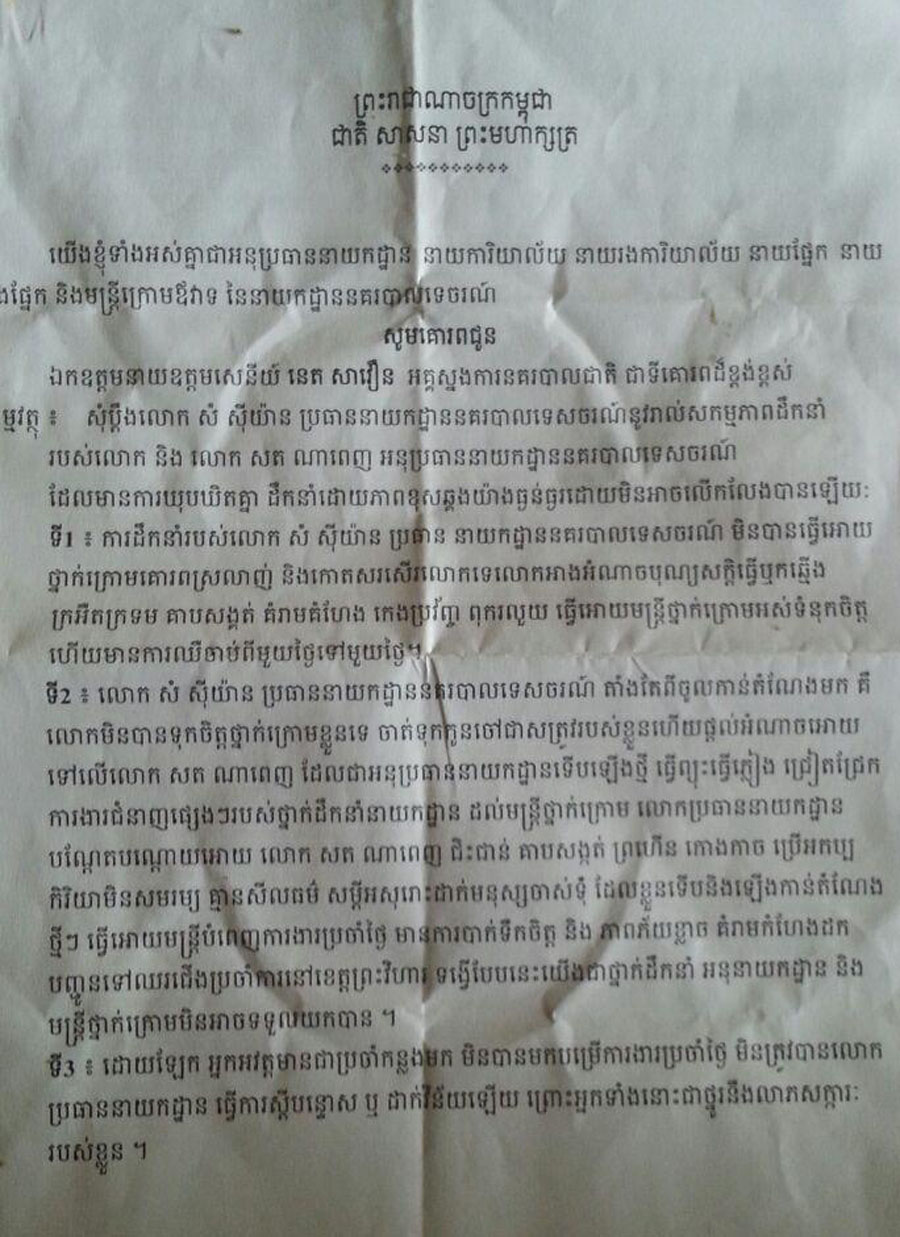 ព្រះរាជាណាចក្រកម្ពុជា
ជាតិ សាសនា ព្រះមហាក្សត្រ
យើងខ្ញុំទាំងអស់គ្នាជាអនុប្រធាននាយកដ្ឋាន នាយការិយាល័យ នាយរងការិយាល័យ នាយផ្នែក នាយ
ងផ្នែក និងមន្ត្រីក្រោមឪវាទ នៃនាយកដ្ឋាននគរបាលទេចរណ៍
សូមគោរពជូន
ឯកឧត្តមនាយឧត្តមសេនីយ៍ នេត សាវឿន អគ្គស្នងការនគរបាលជាតិ ជាទីគោរពដ៏ខ្ពង់ខ្ពស់
ម្មវត្ថុ ៖ សុំប្តឹងលោក សំ ស៊ីយ៉ាន ប្រធាននាយកដ្ឋាននគរបាលទេសចរណ៍នូវរាល់សកម្មភាពដឹកនាំ
របស់លោក និង លោក សត ណាពេញ អនុប្រធាននាយកដ្ឋាននគរបាលទេសចរណ៍
ដែលមានការឃុបឃិតគ្នា ដឹកនាំដោយភាពខុសឆ្គងយ៉ាងធ្ងន់ធ្ងរដោយមិនអាចលើកលែងបានឡើយៈ
ទី1 ៖ ការដឹកនាំរបស់លោក សំ ស៊ីយ៉ាន ប្រធាន នាយកដ្ឋាននគរបាលទេសចរណ៍ មិនបានធ្វើអោយ
ថ្នាក់ក្រោមគោរពស្រលាញ់ និងកោតសរសើរលោកទេលោកអាងអំណាចបុណ្យសក្តិធ្វើឬកឆ្មើង
ក្រអឺតក្រទម គាបសង្កត់ គំរាមគំហែង កេងប្រវ័ញ្ច ពុករលួយ ធ្វើអោយមន្ត្រីថ្នាក់ក្រោមអស់ទំនុកចិត្ត
ហើយមានការឈឺចាប់ពីមួយថ្ងៃទៅមួយថ្ងៃ។
ទី2 ៖ លោក សំ ស៊ីយ៉ាន ប្រធាននាយកដ្ឋាននគរបាលទេសចរណ៍ តាំងតែពីចូលកាន់តំណែងមក គឺ
លោកមិនបានទុកចិត្តថ្នាក់ក្រោមខ្លួនទេ ចាត់ទុកកូនចៅជាសត្រូវរបស់ខ្លួនហើយផ្តល់អំណាចអោយ
ទៅលើលោក សត ណាពេញ ដែលជាអនុប្រធាននាយកដ្ឋានទើបឡើងថ្មី ធ្វើព្យុះធ្វើភ្លៀង ជ្រៀតជ្រែក
ការងារជំនាញផ្សេងៗរបស់ថ្នាក់ដឹកនាំនាយកដ្ឋាន ដល់មន្ត្រីថ្នាក់ក្រោម លោកប្រធាននាយកដ្ឋាន
បណ្តែតបណ្តោយអោយ លោក សត ណាពេញ ជិះជាន់ គាបសង្កត់ ព្រហើន កោងកាច ប្រើអកប្ប
កិរិយាមិនសមរម្យ គ្មានសីលធម៌ សម្តីអសុរោះដាក់មនុស្សចាស់ទុំ ដែលខ្លួនទើបនិងឡើងកាន់តំណែង
ថ្មីៗ ធ្វើអោយមន្ត្រីបំពេញការងារប្រចាំថ្ងៃ មានការបាក់ទឹកចិត្ត និង ភាពភ័យខ្លាច គំរាមកំហែងដក
បញ្ជូនទៅឈរជើងប្រចាំការនៅខេត្តព្រះវិហារ ទង្វើបែបនេះយើងជាថ្នាក់ដឹកនាំ អនុនាយកដ្ឋាន និង
មន្ត្រីថ្នាក់ក្រោមមិនអាចទទួលយកបាន ។
ទី3 ៖ ដោយឡែក អ្នកអវត្តមានជាប្រចាំកន្លងមក មិនបានមកបម្រើការងារប្រចាំថ្ងៃ មិនត្រូវបានលោក
ប្រធាននាយកដ្ឋាន ធ្វើការស្តីបន្ទោស ឬ ដាក់វិន័យឡើយ ព្រោះអ្នកទាំងនោះជាថ្នូរនឹងលាភសក្ការៈ
របស់ខ្លួន ។